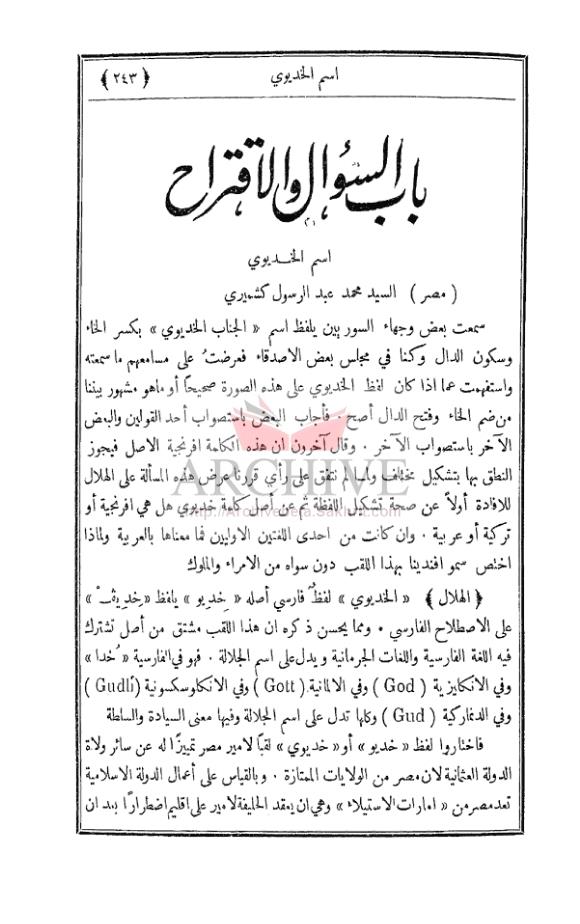 اسم الخديوي
﴿ ٢٤٣ ﴾
باب السؤال والاقتراح
اسم الخديوي
( مصر ) السيد محمد عبد الرسول كشميري
سمعت بعض وجهاء السوريين يلفظ اسم « الجناب الخديوي » بكسر الخاء
وسكون الدال وكنا في مجلس بعض الاصدقاء فعرضت على مسامعهم ما سمعته
واستفهمت عما اذا كان لفظ الخديوي على هذه الصورة صحيحاً أو ما هو مشهور بيننا
من ضم الخاء وفتح الدال أصح . فأجاب البعض باستصواب أحد القولين والبعض
الآخر باستصواب الآخر . وقال آخرون ان هذه الكلمة افرنجية الاصل فيجوز
النطق بها بتشكيل مختلف ولما لم نتفق على رأي قررنا عرض هذه المسألة على الهلال
للافادة أولاً عن صحة تشكيل اللفظة ثم عن أصل كلمة خديوي هل هي افرنجية أو
تركية أو عربية . وان كانت من احدى اللغتين الاوليين فما معناها بالعربية ولماذا
اختص سمو افندينا بهذا اللقب دون سواه من الامراء والملوك
﴿ الهلال ﴾ « الخديوي » لفظٌ فارسي أصله « خِديو » يلفظ « »
على الاصطلاح الفارسي . ومما يحسن ذكره ان هذا اللقب مشتق من أصل تشترك
فيه اللغة الفارسية واللغات الجرمانية ويدل على اسم الجلالة . فهو في الفارسية « خُدا »
وفي الانكليزية ( God ) وفي الالمانية ( Gott ) وفي الانكلوسكسونية ( Gudlî )
وفي الدنماركية ( Gud ) وكلها تدل على اسم الجلالة وفيها معنى السيادة والسلطة
فاختاروا لفظ « خديو » أو « خديوي » لقباً لامير مصر تمييزاً له عن سائر ولاة
الدولة العثمانية لان مصر من الولايات الممتازة . وبالقياس على أعمال الدولة الاسلامية
تعد مصر من « امارات الاستيلاء » وهي ان يعقد الخليفة لامير على اقليم اضطراراً بعد ان
ARCHIVE